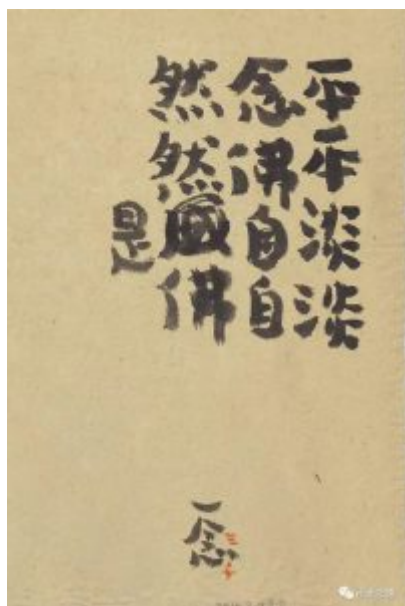 平平淡淡
念佛自自
然然佛
是
一念
三千